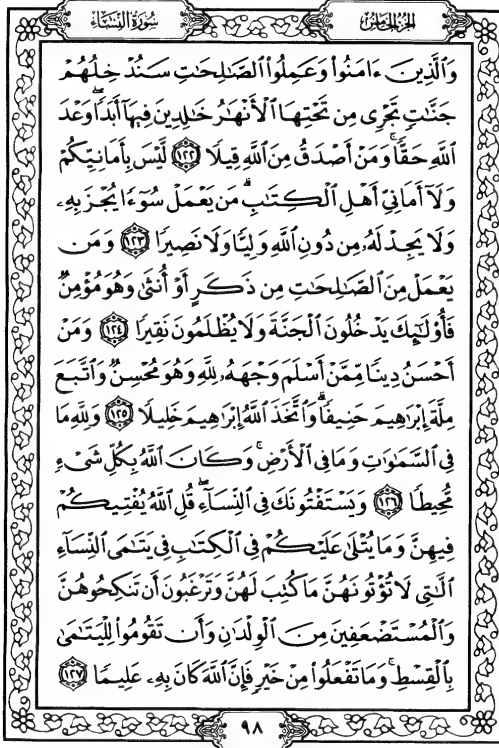 سُورَةُ النِّسَاءِ
الجُزْءُ الخَامِسُ
وَالَّذِينَ ءَامَنُوا۟ وَعَمِلُوا۟ الصَّالِحَاتِ سَنُدْخِلُهُمْ
جَنَّاتٍ تَجْرِى مِن تَحْتِهَا الْأَنْهَارُ خَالِدِينَ فِيهَآ أَبَدًا ۖ وَعْدَ
اللَّهِ حَقًّا ۚ وَمَنْ أَصْدَقُ مِنَ اللَّهِ قِيلًا ١٢٢ لَّيْسَ بِأَمَانِيِّكُمْ
وَلَآ أَمَانِىِّ أَهْلِ الْكِتَابِ ۗ مَن يَعْمَلْ سُوٓءًا يُجْزَ بِهِۦ
وَلَا يَجِدْ لَهُۥ مِن دُونِ اللَّهِ وَلِيًّا وَلَا نَصِيرًا ١٢٣ وَمَن
يَعْمَلْ مِنَ الصَّالِحَاتِ مِن ذَكَرٍ أَوْ أُنثَىٰ وَهُوَ مُؤْمِنٌ
فَأُو۟لَٰٓئِكَ يَدْخُلُونَ الْجَنَّةَ وَلَا يُظْلَمُونَ نَقِيرًا ١٢٤ وَمَنْ
أَحْسَنُ دِينًا مِّمَّنْ أَسْلَمَ وَجْهَهُۥ لِلَّهِ وَهُوَ مُحْسِنٌ وَاتَّبَعَ
مِلَّةَ إِبْرَاهِيمَ حَنِيفًا ۗ وَاتَّخَذَ اللَّهُ إِبْرَاهِيمَ خَلِيلًا ١٢٥ وَلِلَّهِ مَا
فِى السَّمَاوَاتِ وَمَا فِى الْأَرْضِ ۚ وَكَانَ اللَّهُ بِكُلِّ شَىْءٍ
مُّحِيطًا ١٢٦ وَيَسْتَفْتُونَكَ فِى النِّسَآءِ ۖ قُلِ اللَّهُ يُفْتِيكُمْ
فِيهِنَّ وَمَا يُتْلَىٰ عَلَيْكُمْ فِى الْكِتَابِ فِى يَتَامَى النِّسَآءِ
الَّاتِى لَا تُؤْتُونَهُنَّ مَا كُتِبَ لَهُنَّ وَتَرْغَبُونَ أَن تَنكِحُوهُنَّ
وَالْمُسْتَضْعَفِينَ مِنَ الْوِلْدَانِ وَأَن تَقُومُوا۟ لِلْيَتَامَىٰ
بِالْقِسْطِ ۚ وَمَا تَفْعَلُوا۟ مِنْ خَيْرٍ فَإِنَّ اللَّهَ كَانَ بِهِۦ عَلِيمًا ١٢٧
٩٨